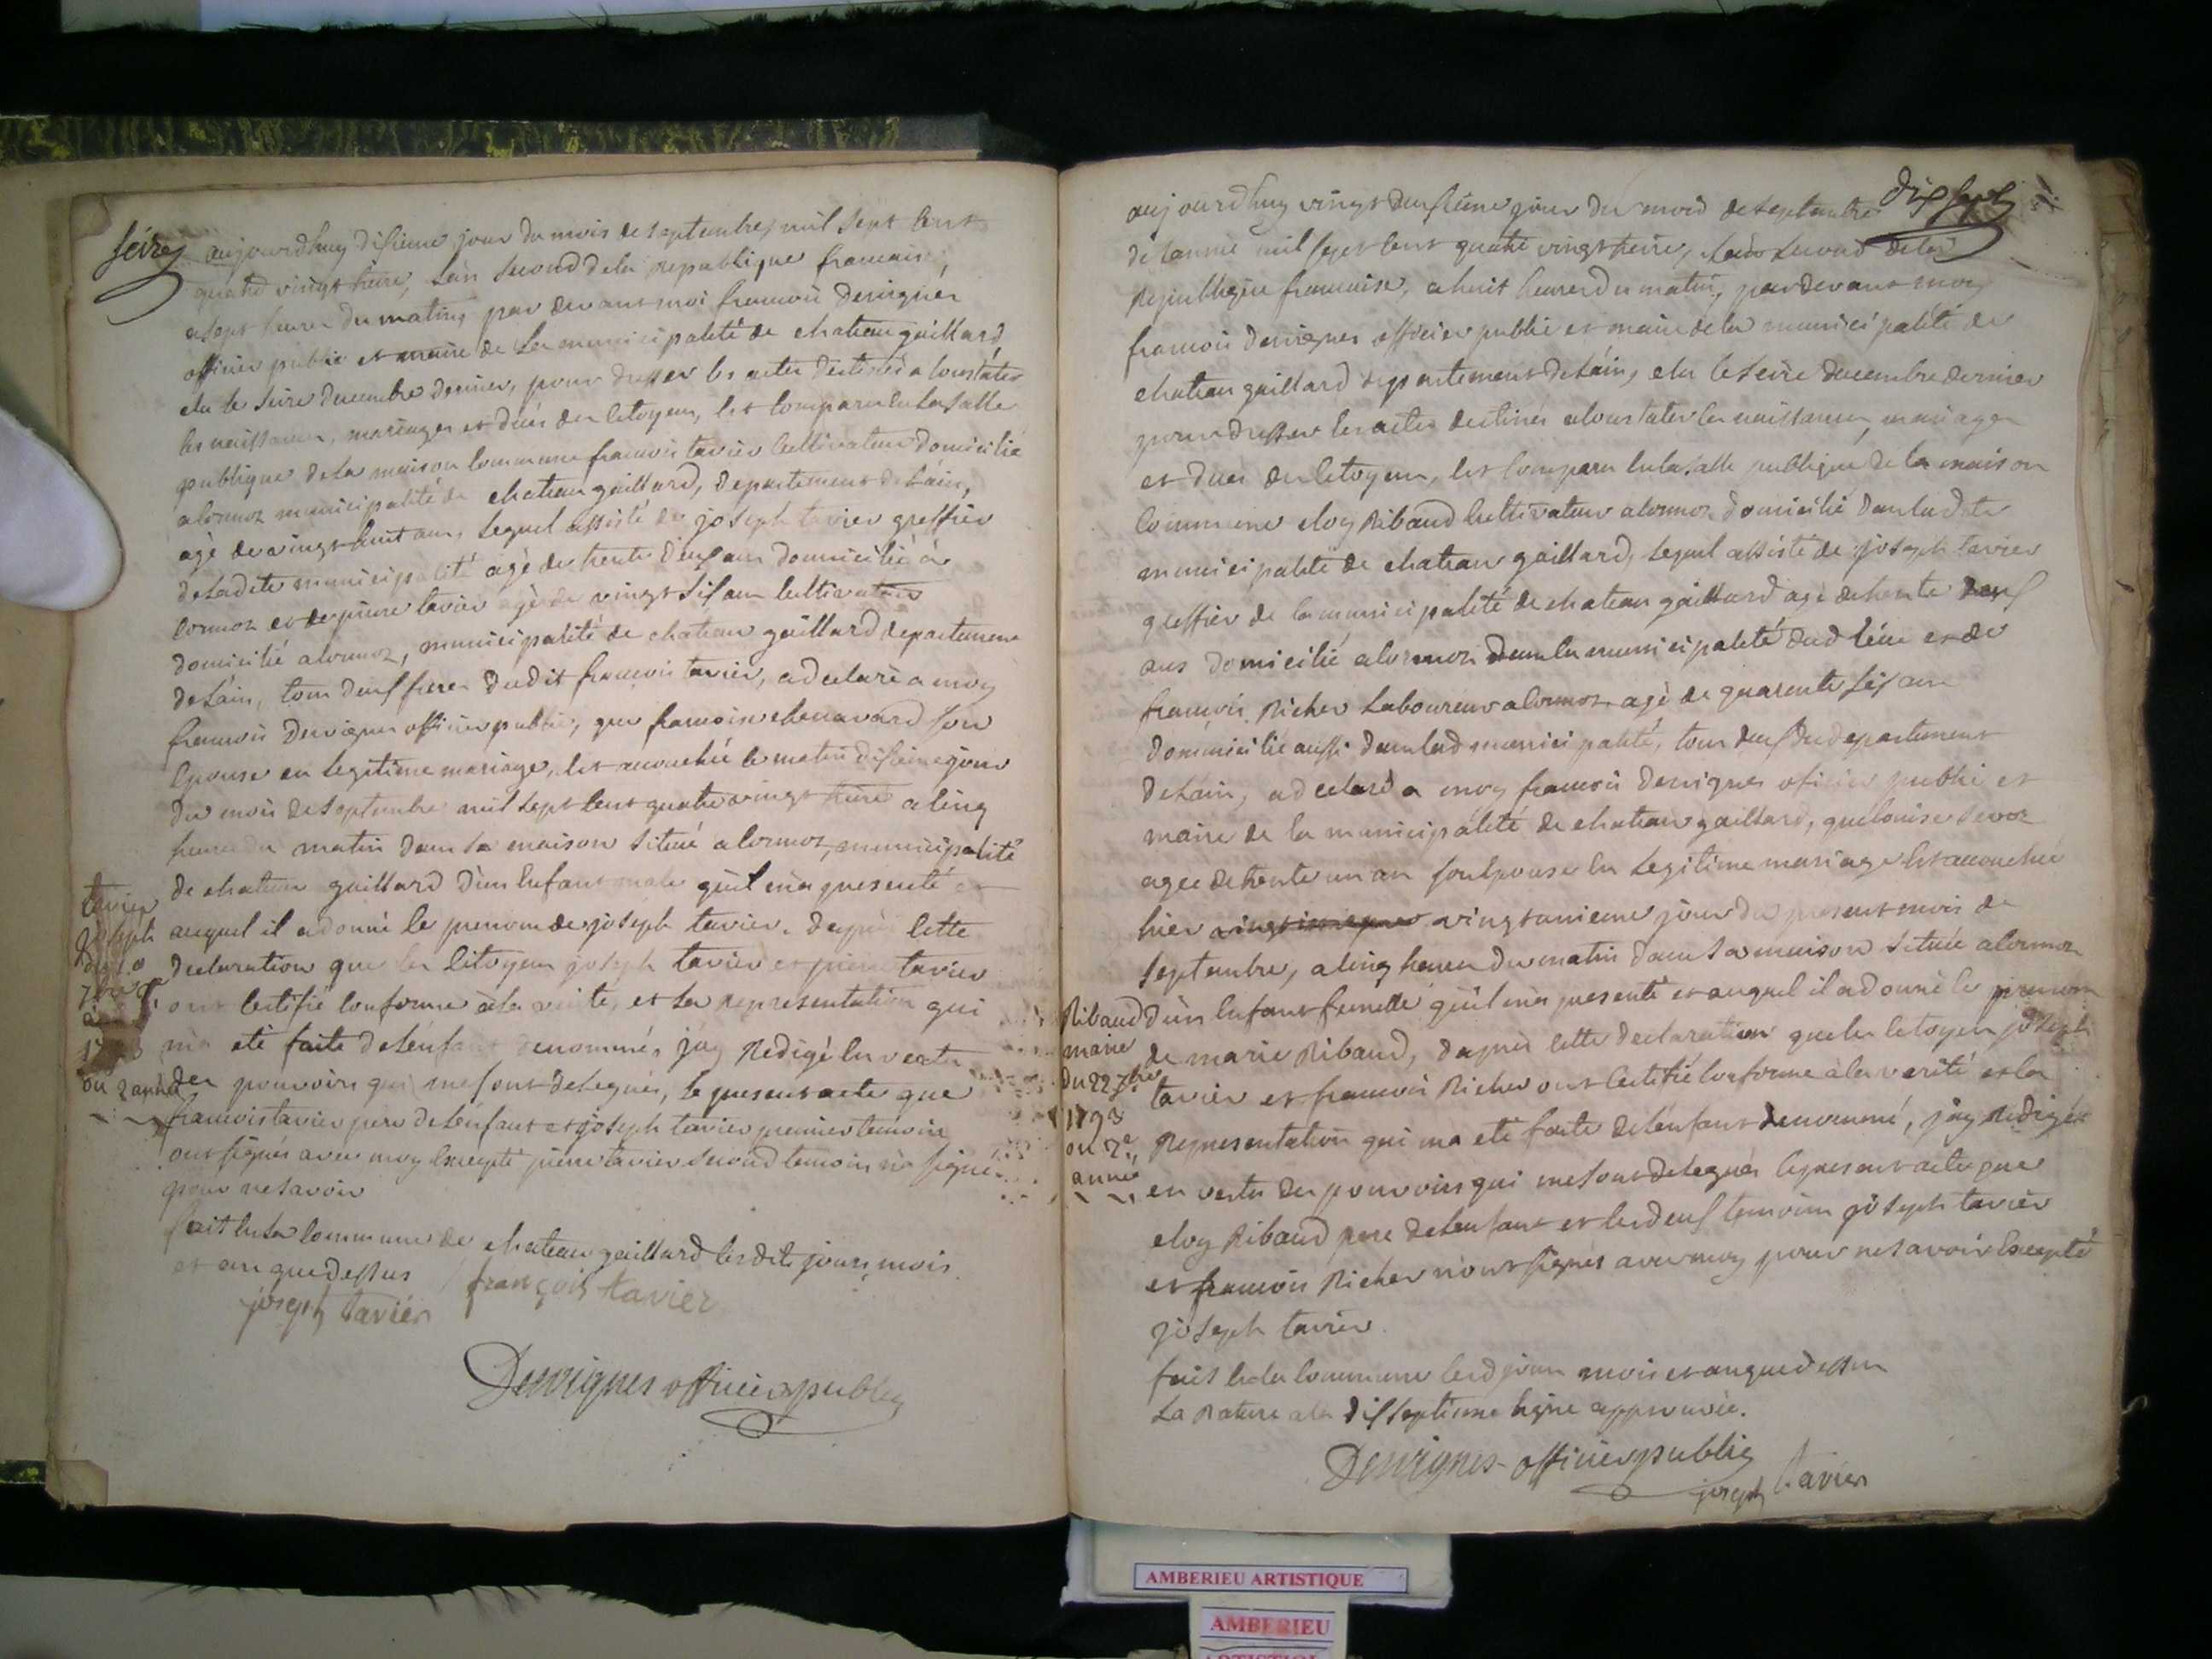 seize
aujourdhuy disieme jour du mois de septembre mil sept cent
quatre vingt treize, lan second de la republique francaise,
a sept heures du matin par devant moi francois desvignes
officier public et maire de la municipalité de chateau gaillard
elu le seize decembre dernier, pour dresser les actes destinés a constater
les naissances, mariages et decés des citoyens, est comparu en la salle
publique de la maison commune francois tavier cultivateur domicilié
a cormoz municipalité de chateau gaillard, departement de l'ain,
agé de vingt huit ans, lequel assisté de joseph tavier greffier
de ladite municipalité agé de trente deux ans domicilié a
cormoz et de pierre tavier agé de vingt six ans cultivateur
domicilié a cormoz, municipalité de chateau gaillard departement
de l'ain, tous deux freres dudit francois tavier, a declaré a moy
francois desvignes officier public, que francoise chenavard son
epouse en legitime mariage, est accouchée le matin disieme jour
du mois de septembre mil sept cent quatre vingt treize a cinq
heures du matin dans sa maison située a cormoz, municipalité
de chateau gaillard d'un enfant male qu'il m'a presenté et
auquel il a donné le prenom de joseph tavier. d'après cette
declaration que les citoyens joseph tavier et pierre tavier
ont certifié conforme a la verité, et la representation qui
m'a eté faite de l'enfant denommé, j'ay redigé en vertu
des pouvoirs qui me sont delegués, le present acte que
francois tavier pere de l'enfant et joseph tavier premier temoin
ont signés avec moy excepté pierre tavier second temoin n'a signé
pour ne savoir
fait en la commune de chateau gaillard lesdits jours, mois
et an que dessus
joseph tavier françois tavier
Desvignes officier public
tavier
joseph
du 10
7bre
ou 2 année
dix sept
aujourdhuy vingt deuxieme jour du mois de septembre
de l'année mil sept cent quatre vingt treize, l'an second de la
Republique francaise, a huit heures du matin, par devant moy
francois desvignes officier public et maire de la municipalité de
chateau gaillard departement de l'ain, elu le seize decembre dernier
pour dresser les actes destinés a constater les naissances, mariages
et decés des citoyens, est comparu en la salle publique de la maison
commune eloy Ribaud cultivateur a cormoz domicilié dans ladite
municipalité de chateau gaillard, lequel assisté de joseph tavier
greffier de la municipalité de chateau gaillard agé de trente deux
ans domicilié a cormoz dans la municipalité dud lieu et de
francois Richer laboureur a cormoz agé de quarente six ans
domicilié aussi dans lad municipalité, tous deux du departement
de l'ain, a declaré a moy francois desvignes oficier public et
maire de la municipalité de chateau gaillard, que louise
agée de trente un an son epouse en legitime mariage est accouchée
hier vingt unieme jour du present mois de
septembre, a cinq heures du matin dans sa maison située a cormoz
d'un enfant femelle qu'il m'a presenté et auquel il a donné le prenom
de marie Ribaud, d'après cette declaration que les citoyens joseph
tavier et francois Richer ont certifié conforme a la verité et la
Representation qui m'a eté faite de l'enfant denommé, j'ay redigé
en vertu des pouvoirs qui me sont delegués le present acte que
eloy Ribaud pere de l'enfant et les deux temoins joseph tavier
et francois Richer n'ont signés avec moy pour ne savoir excepté
joseph tavier.
fait en la commune lesd jours mois et an que dessus
la rature a la dis septieme ligne approuvée.
Desvignes officier public
joseph tavier
Ribaud
marie
du 22 7bre
1793
ou 2e
année
AMBERIEU ARTISTIQUE
AMBERIEU
ARTISTIQUE